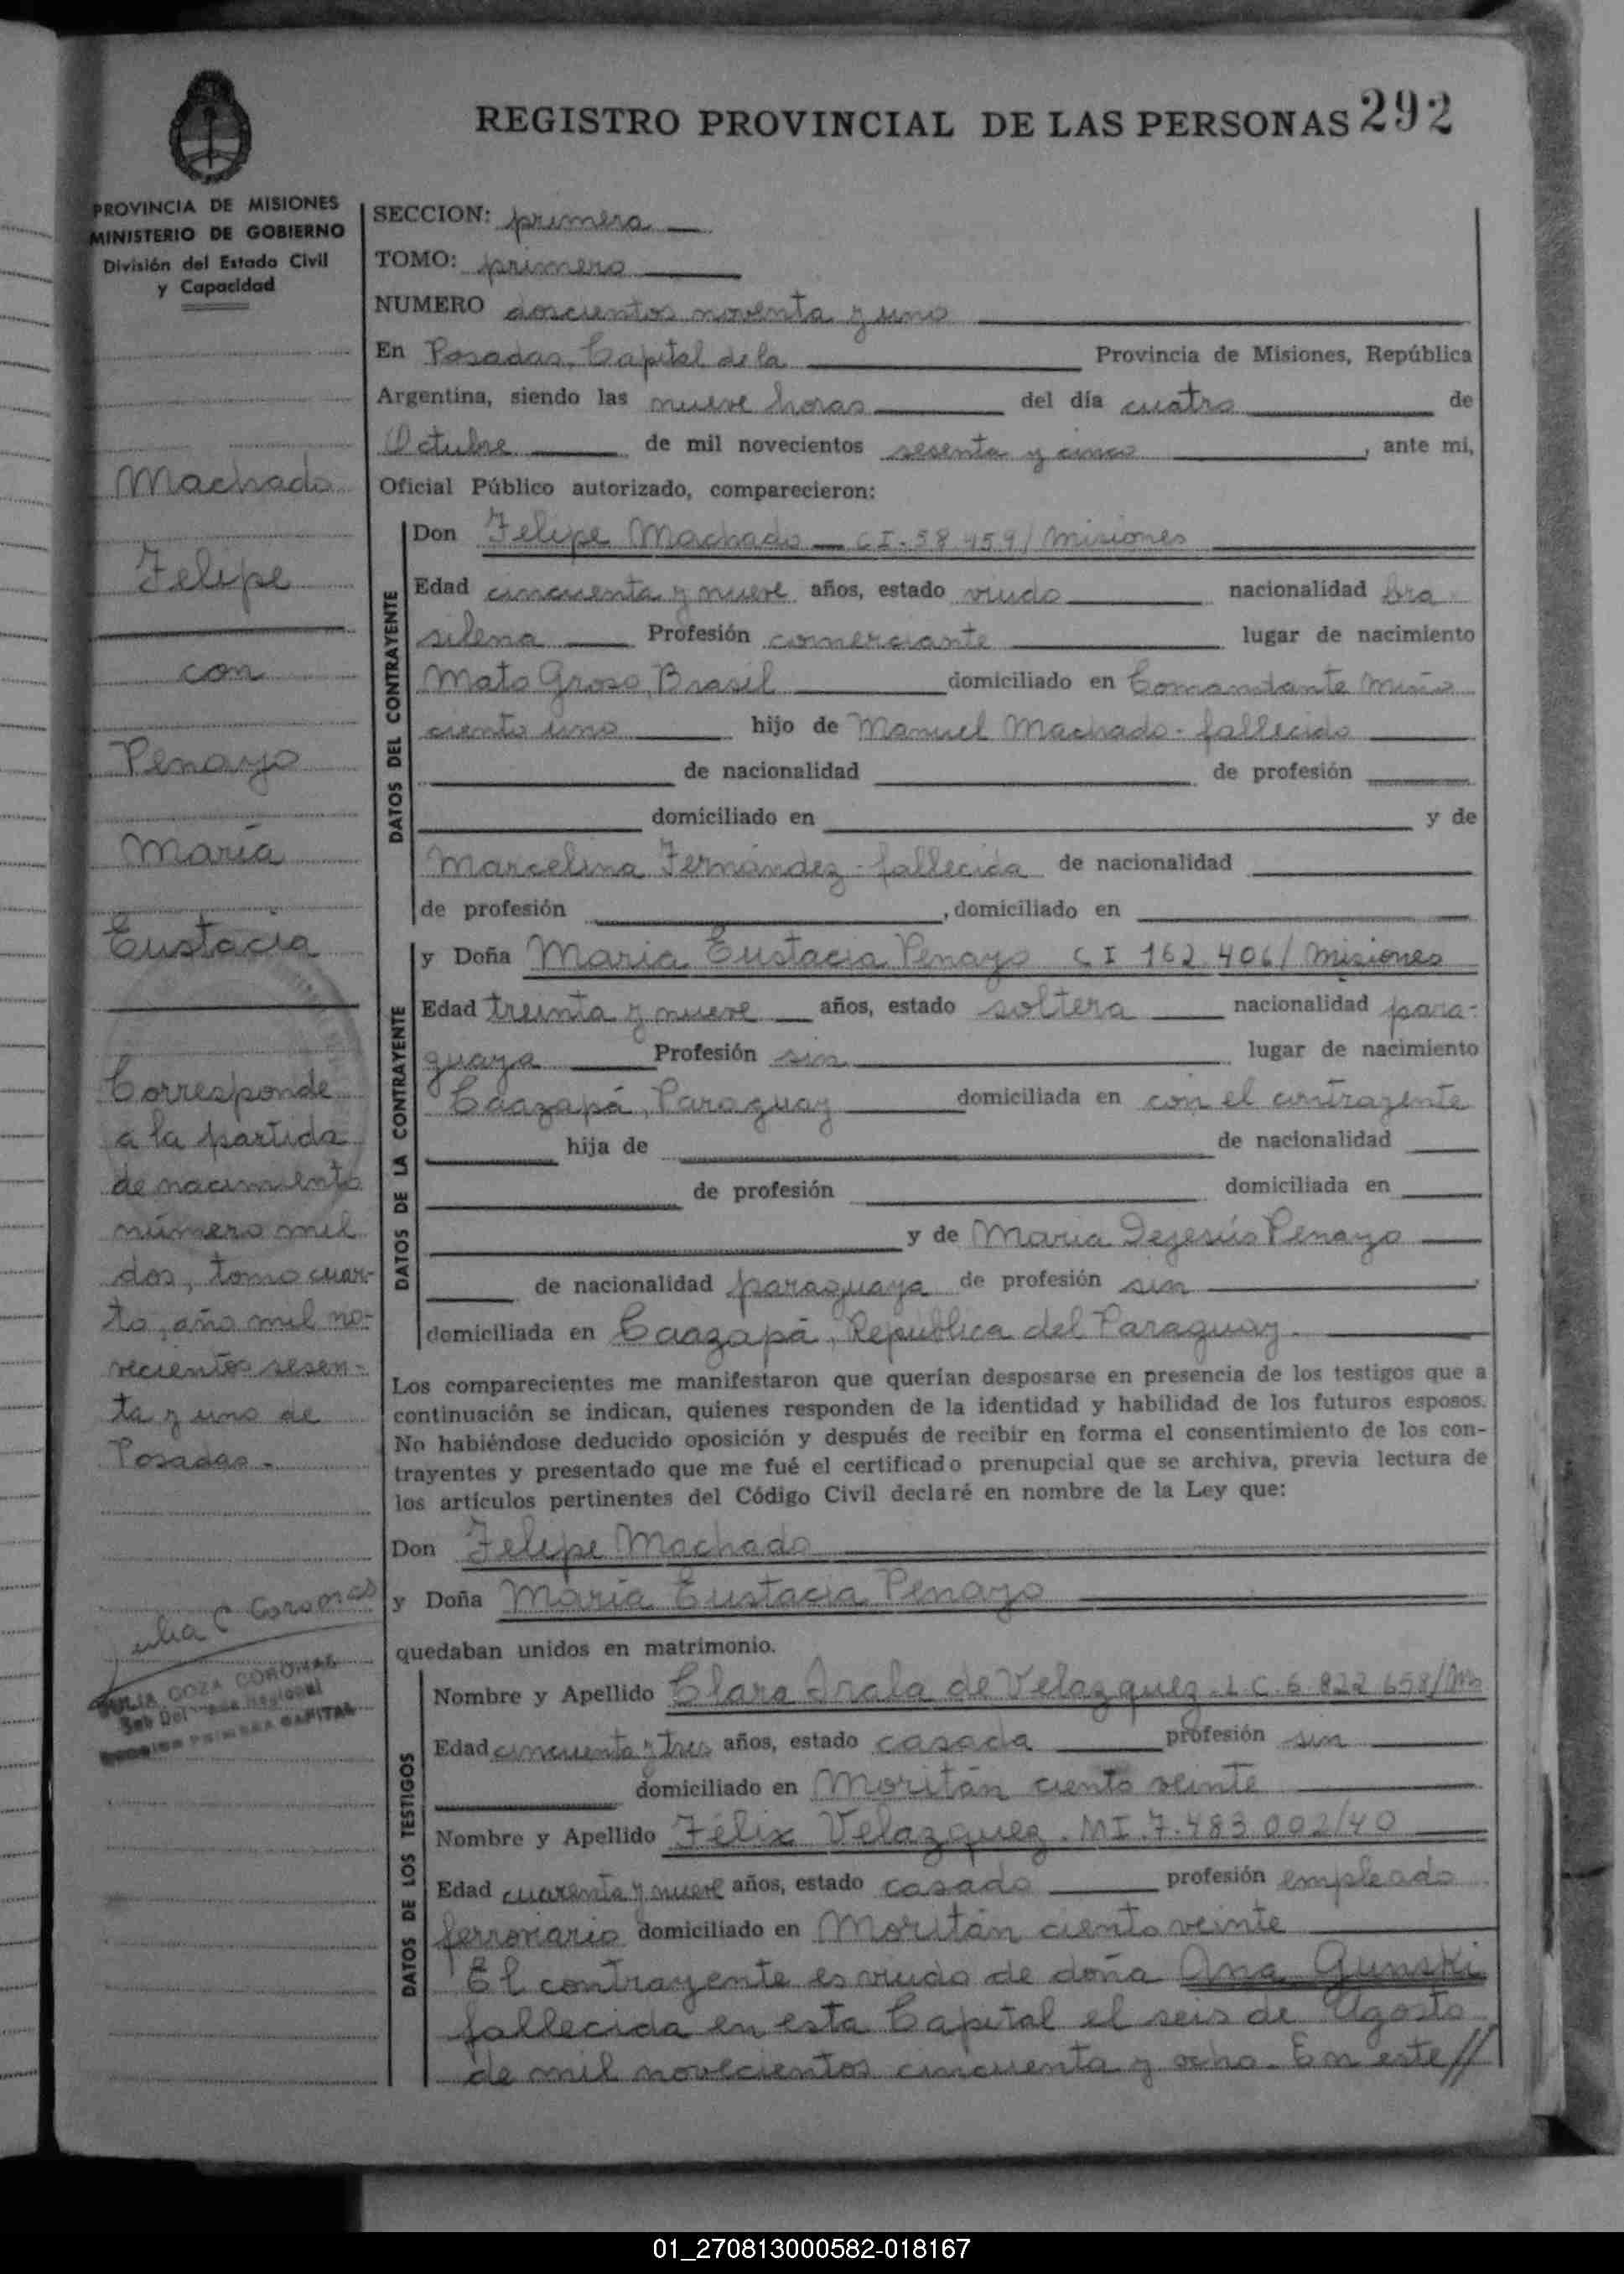 REGISTRO PROVINCIAL DE LAS PERSONAS 292
PROVINCIA DE MISIONES
MINISTERIO DE GOBIERNO
División del Estado Civil
y Capacidad
Machado
Felipe
con
Penayo
María
Eustacia
Corresponde
a la partida
de nacimiento
número mil
dos, tomo cuar-
to, año mil no-
vecientos sesen-
ta y uno de
Posadas.-
Julia C Coronas
JULIA COZA CORONAS
Sub Del Regional
PRIMERA CAPITAL
SECCION: primera
TOMO: primero
NUMERO doscientos noventa y uno
En Posadas, Capital de la Provincia de Misiones, República
Argentina, siendo las nueve horas del día cuatro de
Octubre de mil novecientos sesenta y cinco, ante mi,
Oficial Público autorizado, comparecieron:
DATOS DEL CONTRAYENTE
Don Felipe Machado - C I. 58.459/ Misiones
Edad cincuenta y nueve años, estado viudo nacionalidad bra
silena Profesión comerciante lugar de nacimiento
Mato Groso, Brasil domiciliado en Comandante Miño
ciento uno hijo de Manuel Machado - fallecido
de nacionalidad de profesión
domiciliado en y de
Marcelina Fernández - fallecida de nacionalidad
de profesión , domiciliado en
DATOS DE LA CONTRAYENTE
y Doña María Eustacia Penayo C I 162.406/ Misiones
Edad treinta y nueve años, estado soltera nacionalidad para-
guaya Profesión sin lugar de nacimiento
Caazapá, Paraguay domiciliada en con el contrayente
hija de de nacionalidad
de profesión domiciliada en
y de Maria Dejesús Penayo
de nacionalidad paraguaya de profesión sin
domiciliada en Caazapá, Republica del Paraguay.
Los comparecientes me manifestaron que querían desposarse en presencia de los testigos que a
continuación se indican, quienes responden de la identidad y habilidad de los futuros esposos.
No habiéndose deducido oposición y después de recibir en forma el consentimiento de los con-
trayentes y presentado que me fué el certificado prenupcial que se archiva, previa lectura de
los artículos pertinentes del Código Civil declaré en nombre de la Ley que:
Don Felipe Machado
y Doña María Eustacia Penayo
quedaban unidos en matrimonio.
DATOS DE LOS TESTIGOS
Nombre y Apellido Clara Irala de Velazquez. L C. 6.822.658/Mb
Edad cincuenta y tres años, estado casada profesión sin
domiciliado en Moritán ciento veinte
Nombre y Apellido Félix Velazquez. M I. 7.483.002/40
Edad cuarenta y nueve años, estado casado profesión empleado
ferroviario domiciliado en Moritán ciento veinte
El contrayente es viudo de doña Ana Gunski
fallecida en esta Capital el seis de Agosto
de mil novecientos cincuenta y ocho. En este //
01_270813000582-018167